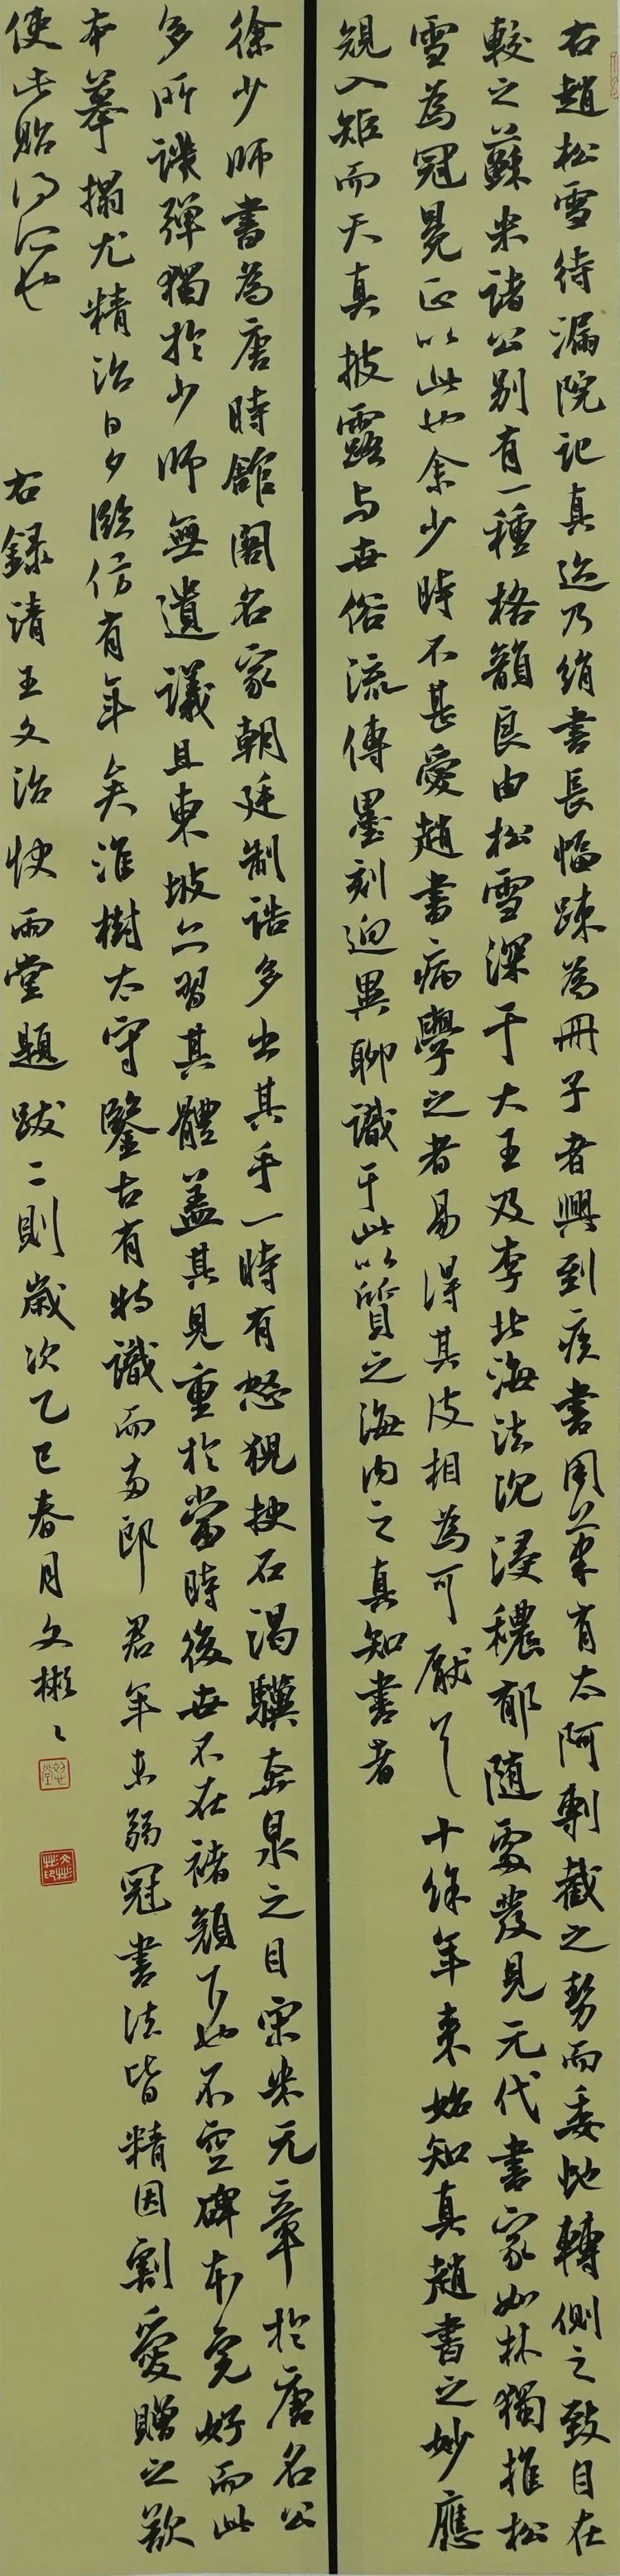 右趙松雪待漏院記真迹乃絹書長幅疎為冊子者興到疾書用筆有太阿剸截之勢而委地轉側之致自在
較之蘇米諸公別有一種格韻良由松雪深于大王及李北海法沉浸穠郁随處發見元代書家如林獨推松
雪為冠冕正以此也余少時不甚愛趙書病學之者易得其皮相為可厭耳十餘年来始知真趙書之妙應
規入矩而天真披露与世俗流傳墨刻迥異聊識于此以質之海内之真知書者
徐少師書為唐時館閣名家朝廷制誥多出其手一時有怒猊抉石渴驥奔泉之目宋米元章於唐名公
多所譏彈獨於少師無遺議且東坡亦習其體蓋其見重於當時後世不在褚顔下也不空碑本完好而此
本摹搨尤精治日夕臨仿有年矣淮樹太守鑒古有特識而兩郎君年未弱冠書法皆精因割愛贈之歎
使此貽得所也
右録清王文治快雨堂題跋二則歲次乙巳春月文彬〻